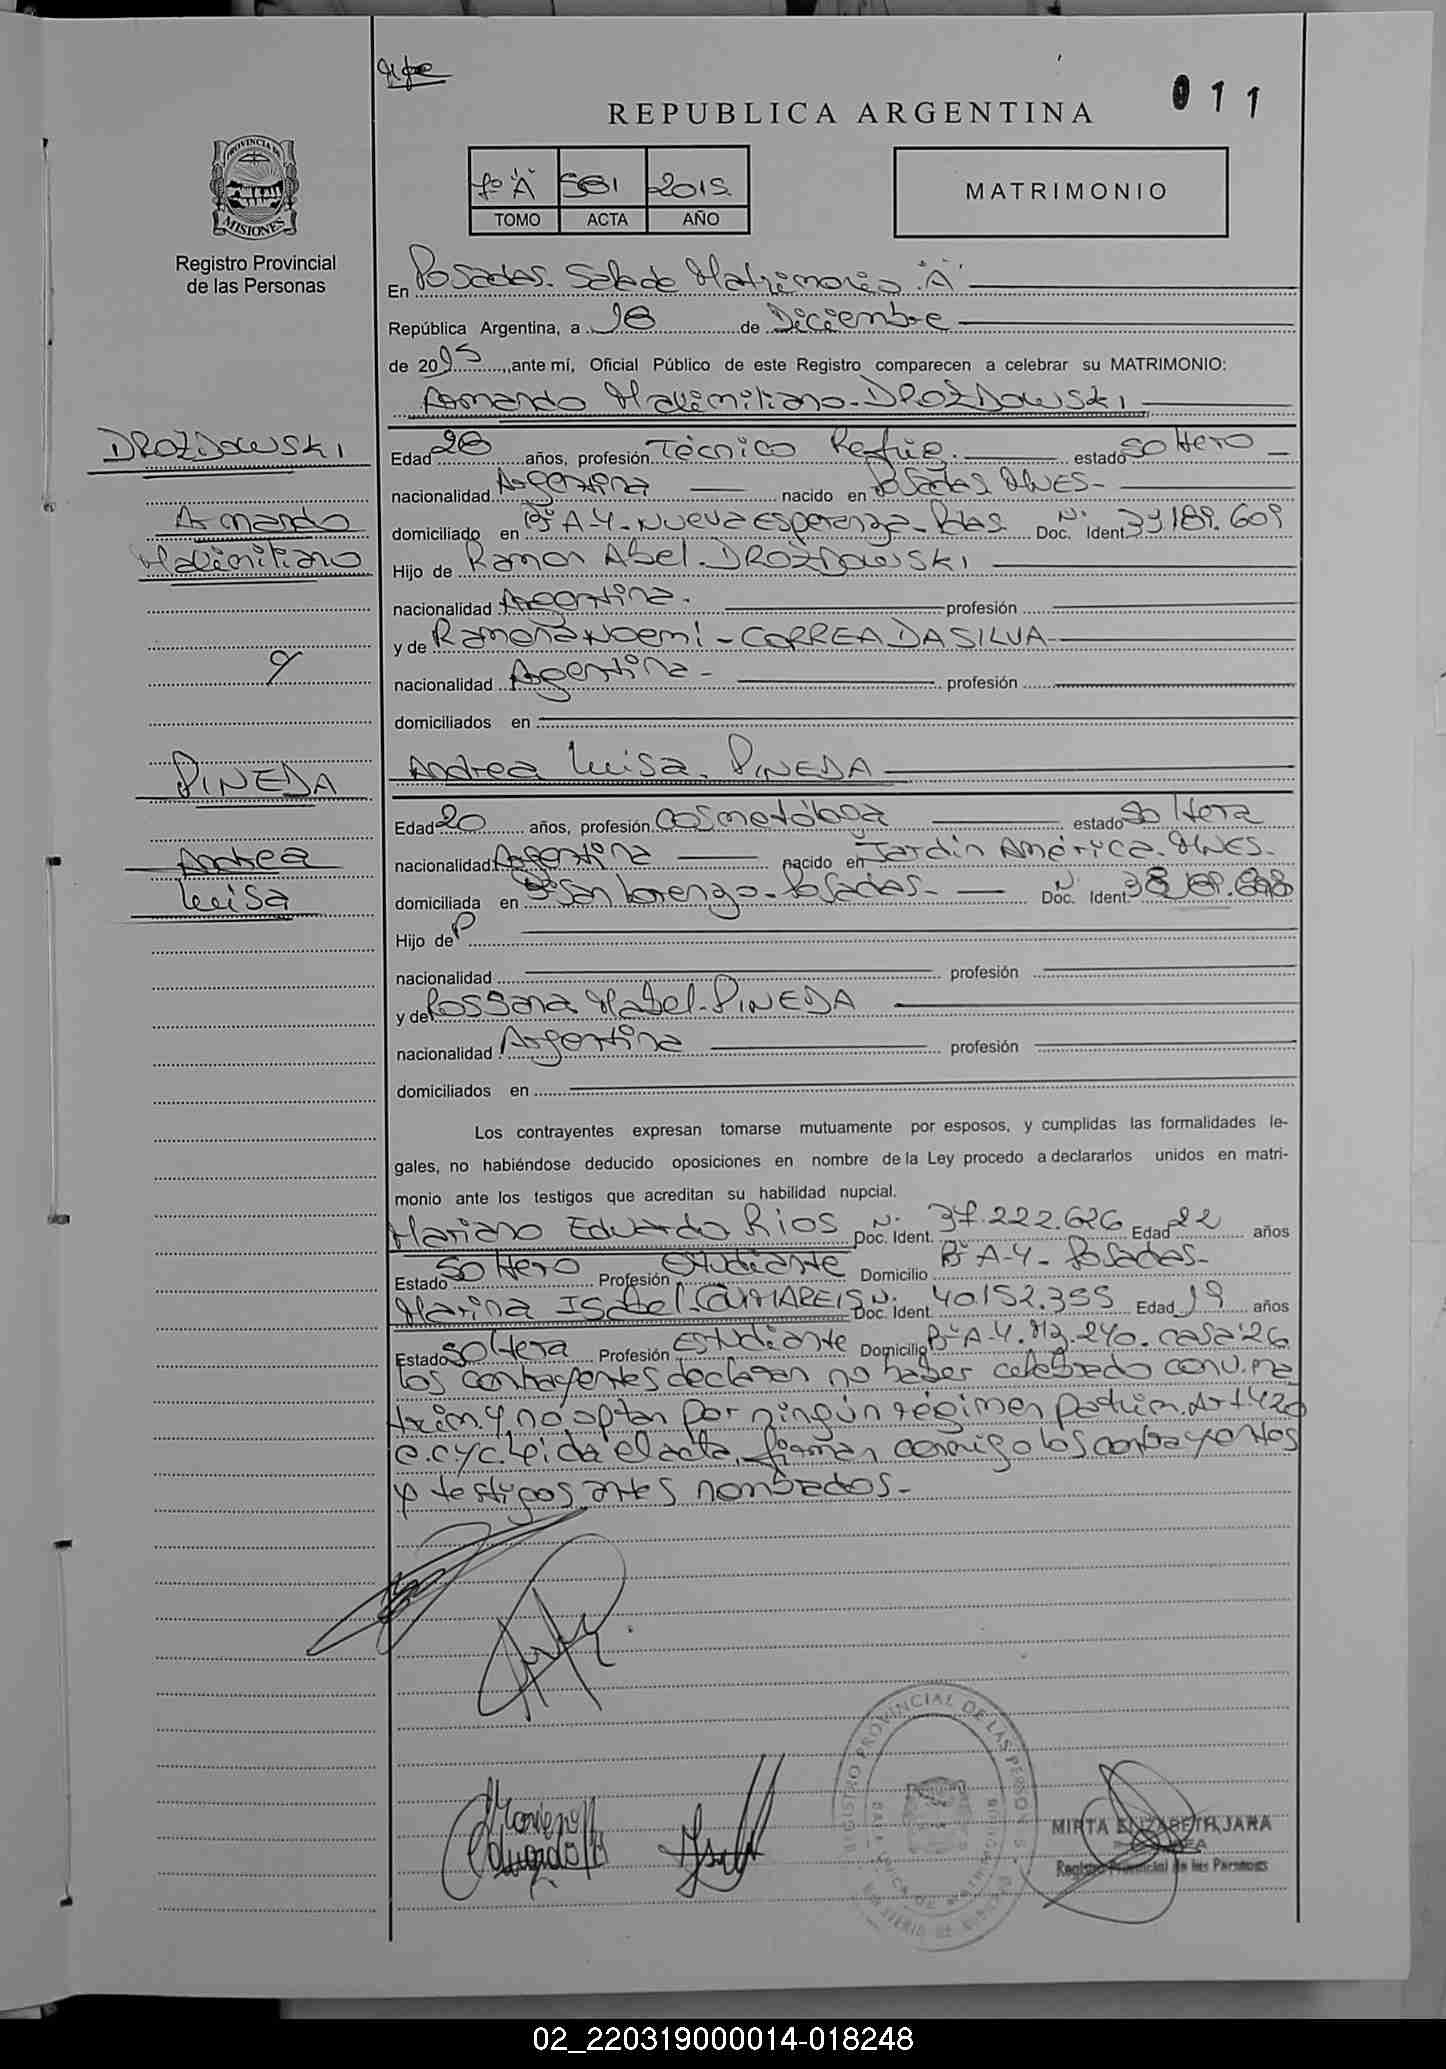 011
REPUBLICA ARGENTINA
PROVINCIA DE
MISIONES
Registro Provincial
de las Personas
7º "A" 581 2015
TOMO ACTA AÑO
MATRIMONIO
En Posadas. Sala de Matrimonio "A"
República Argentina, a 18 de Diciembre
de 2015, ante mí, Oficial Público de este Registro comparecen a celebrar su MATRIMONIO:
Armando Maximiliano DROZDOWSKI
DROZDOWSKI
Armando
Maximiliano
y
PINEDA
Andrea
Luisa
Edad 28 años, profesión Técnico Refrig. estado soltero
nacionalidad Argentina nacido en Posadas MNES-
domiciliado en Bº A-4-Nueva Esperanza-Pdas Doc. Ident. Nº 33189.609
Hijo de Ramon Abel DROZDOWSKI
nacionalidad Argentina. profesión
y de Ramona Noemi - CORREA DA SILVA
nacionalidad Argentina - profesión
domiciliados en
Andrea Luisa. PINEDA
Edad 20 años, profesión Cosmetóloga estado Soltera
nacionalidad Argentina nacido en Jardín América. MNES.
domiciliada en Bº San Lorenzo-Posadas- Doc. Ident. Nº
Hijo de
nacionalidad profesión
y de Rossana Mabel-PINEDA
nacionalidad Argentina profesión
domiciliados en
Los contrayentes expresan tomarse mutuamente por esposos, y cumplidas las formalidades le-
gales, no habiéndose deducido oposiciones en nombre de la Ley procedo a declararlos unidos en matri-
monio ante los testigos que acreditan su habilidad nupcial.
Mariano Eduardo Rios Doc. Ident. Nº 37.222.626 Edad 22 años
Estado soltero Profesión Estudiante Domicilio Bº A-4- Posadas-
Marina Isabel. Doc. Ident. Nº 40.152.355 Edad 19 años
Estado soltera Profesión Estudiante Domicilio Bº A-4. Mz. 240. casa 26
los contrayentes declaran no haber celebrado conv. ma-
trim. y no optan por ningún régimen patrim. Art 420
c.c y c. Leida el acta, firman conmigo los contrayentes
y testigos antes nombrados.-
REGISTRO PROVINCIAL DE LAS PERSONAS
MIRTA ELIZABETH JARA
Registro Provincial de las Personas
02_220319000014-018248